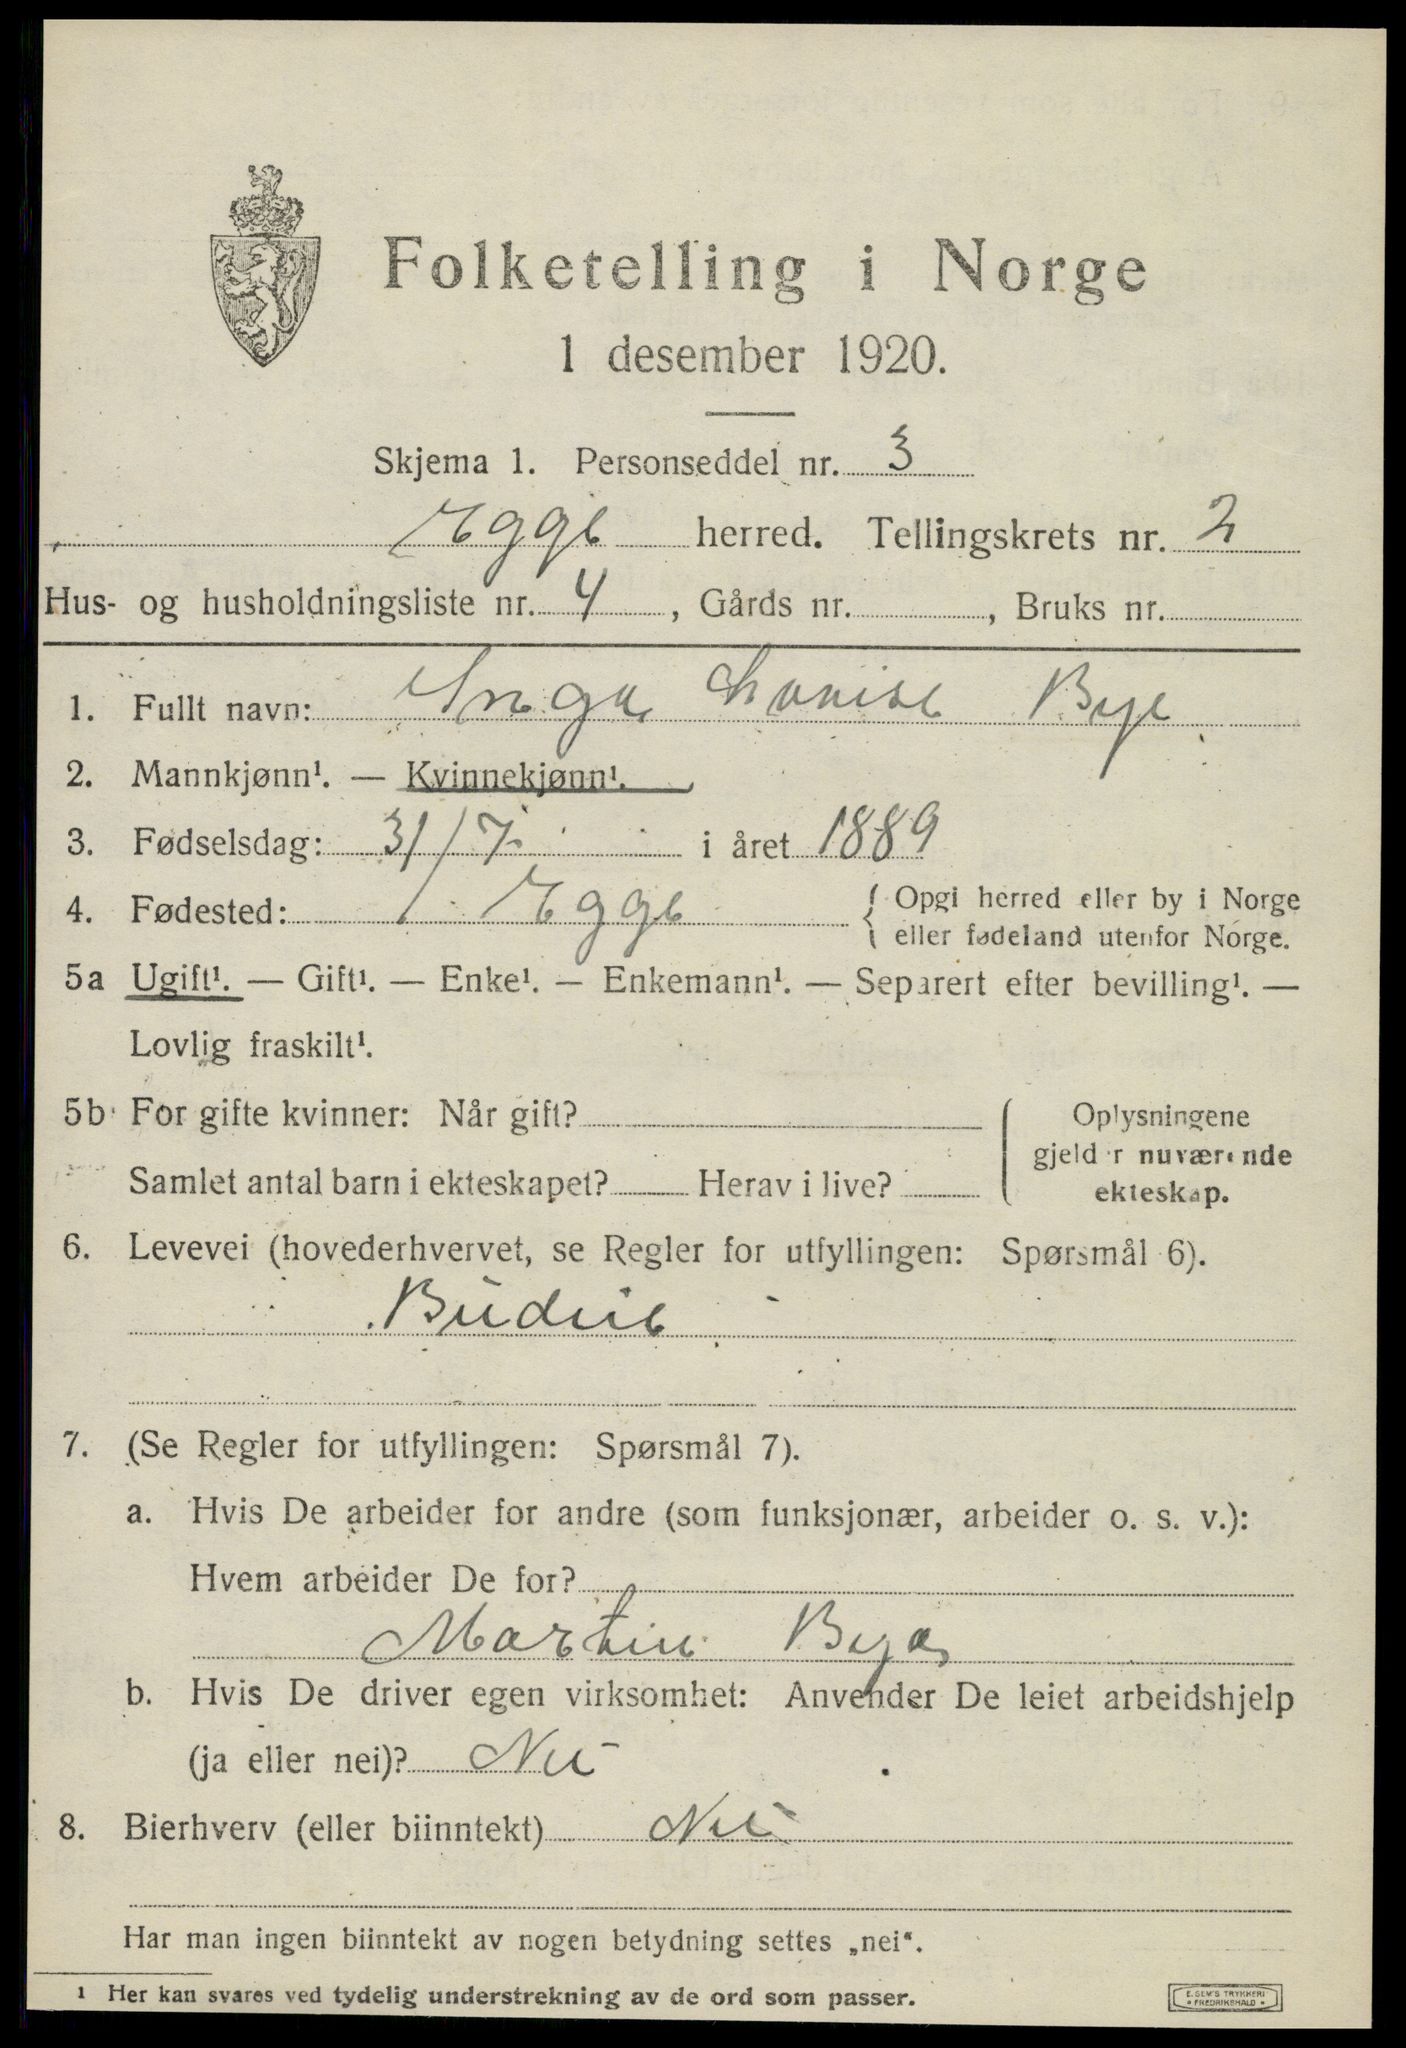 Folketelling i Norge
1 desember 1920.
Skjema 1. Personseddel nr. 3
Egge herred. Tellingskrets nr. 2
Hus- og husholdningsliste nr. 4, Gårds nr. , Bruks nr.
1. Fullt navn: Inga Lovise Bye
2. Mannkjønn¹. — Kvinnekjønn¹.
3. Fødselsdag: 31/7 i året 1889
4. Fødested: Egge { Opgi herred eller by i Norge
eller fødeland utenfor Norge.
5a Ugift¹. — Gift¹. — Enke¹. — Enkemann¹. — Separert efter bevilling¹. —
Lovlig fraskilt¹.
5b For gifte kvinner: Når gift? Oplysningene
gjelder nuværende
Samlet antal barn i ekteskapet? Herav i live? ekteskap.
6. Levevei (hovederhvervet, se Regler for utfyllingen: Spørsmål 6).
Budeie
7. (Se Regler for utfyllingen: Spørsmål 7).
a. Hvis De arbeider for andre (som funksjonær, arbeider o. s. v.):
Hvem arbeider De for?
Martin Bye
b. Hvis De driver egen virksomhet: Anvender De leiet arbeidshjelp
(ja eller nei)? Nei
8. Bierhverv (eller biinntekt) Nei
Har man ingen biinntekt av nogen betydning settes „nei“.
1 Her kan svares ved tydelig understrekning av de ord som passer.
E. SEM'S TRYKKERI
• FREDRIKSHALD •